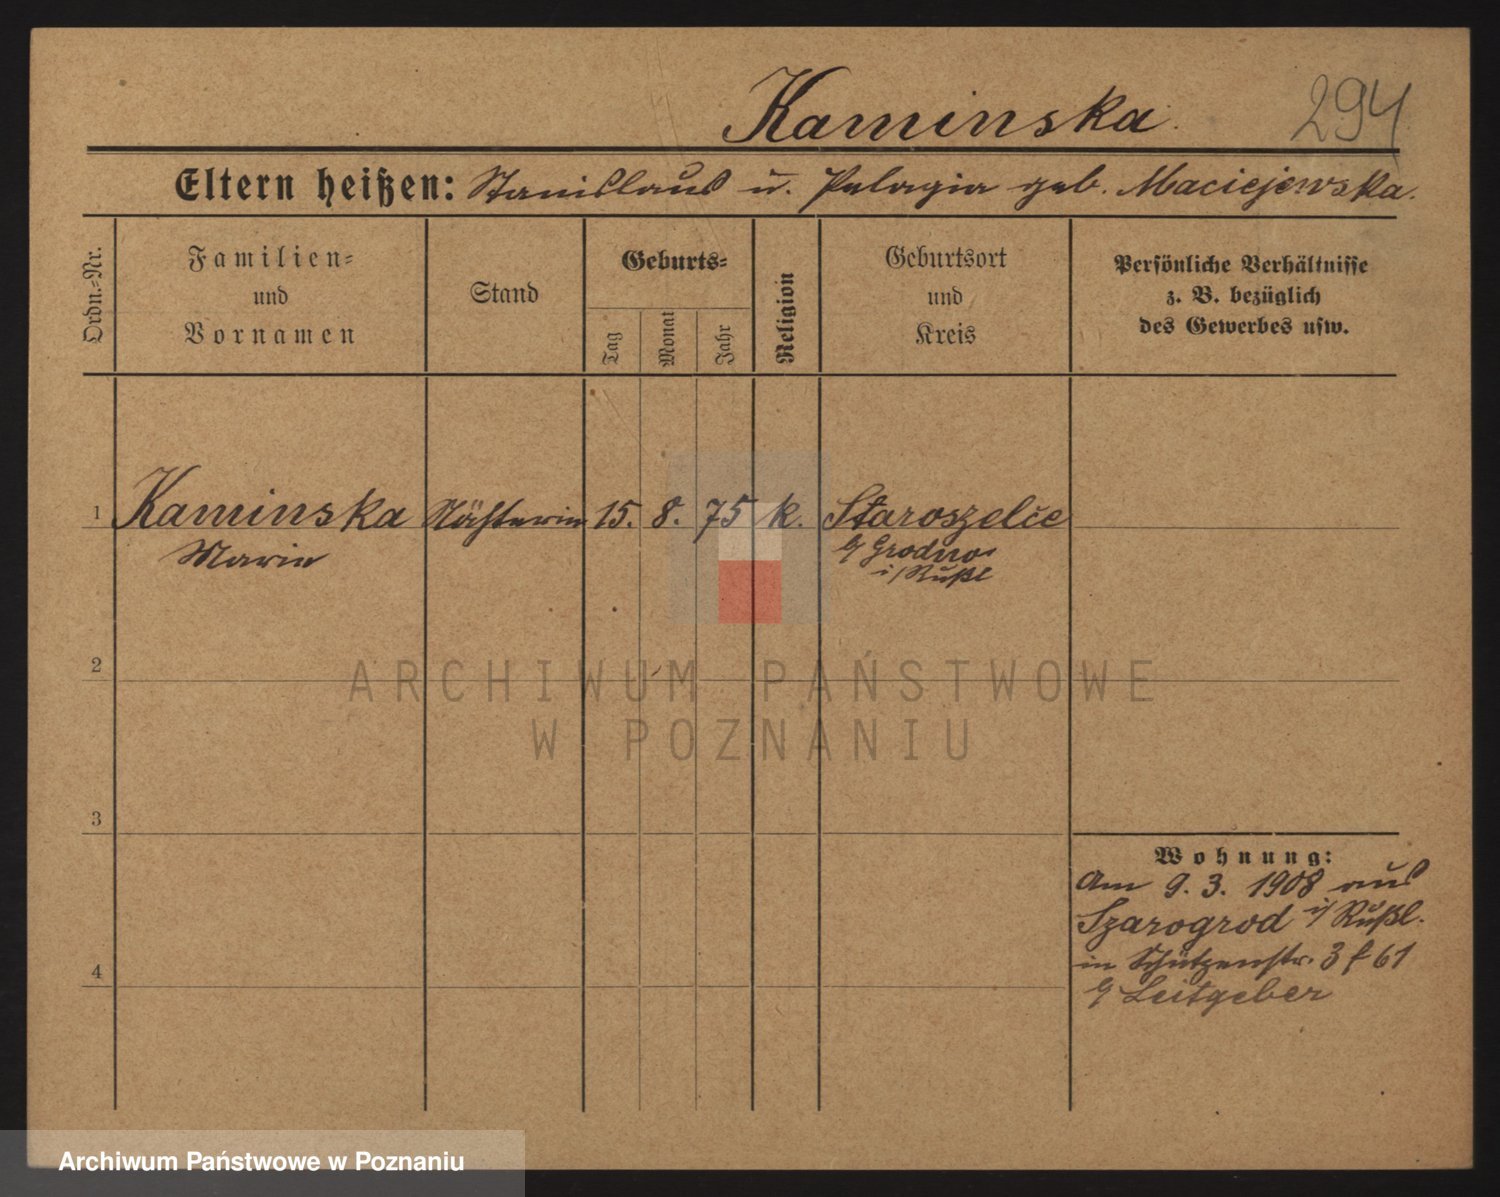 Kaminska.
294
Eltern heißen: Stanislaus u. Pelagia geb. Maciejewska.
Ordn.-Nr.
Familien-
und
Vornamen
Stand
Geburts-
Tag
Monat
Jahr
Religion
Geburtsort
und
Kreis
Persönliche Verhältnisse
z. B. bezüglich
des Gewerbes usw.
1 Kaminska Nähterin 15. 8. 75 k. Staroszelce
Marie Grodno
i/Rußl
2
ARCHIWUM PAŃSTWOWE
W POZNANIU
3
Wohnung:
Am 9. 3. 1908 aus
Szarogrod i/Rußl.
in Schützenstr. 3 f 61
4
b/ Leitgeber
Archiwum Państwowe w Poznaniu